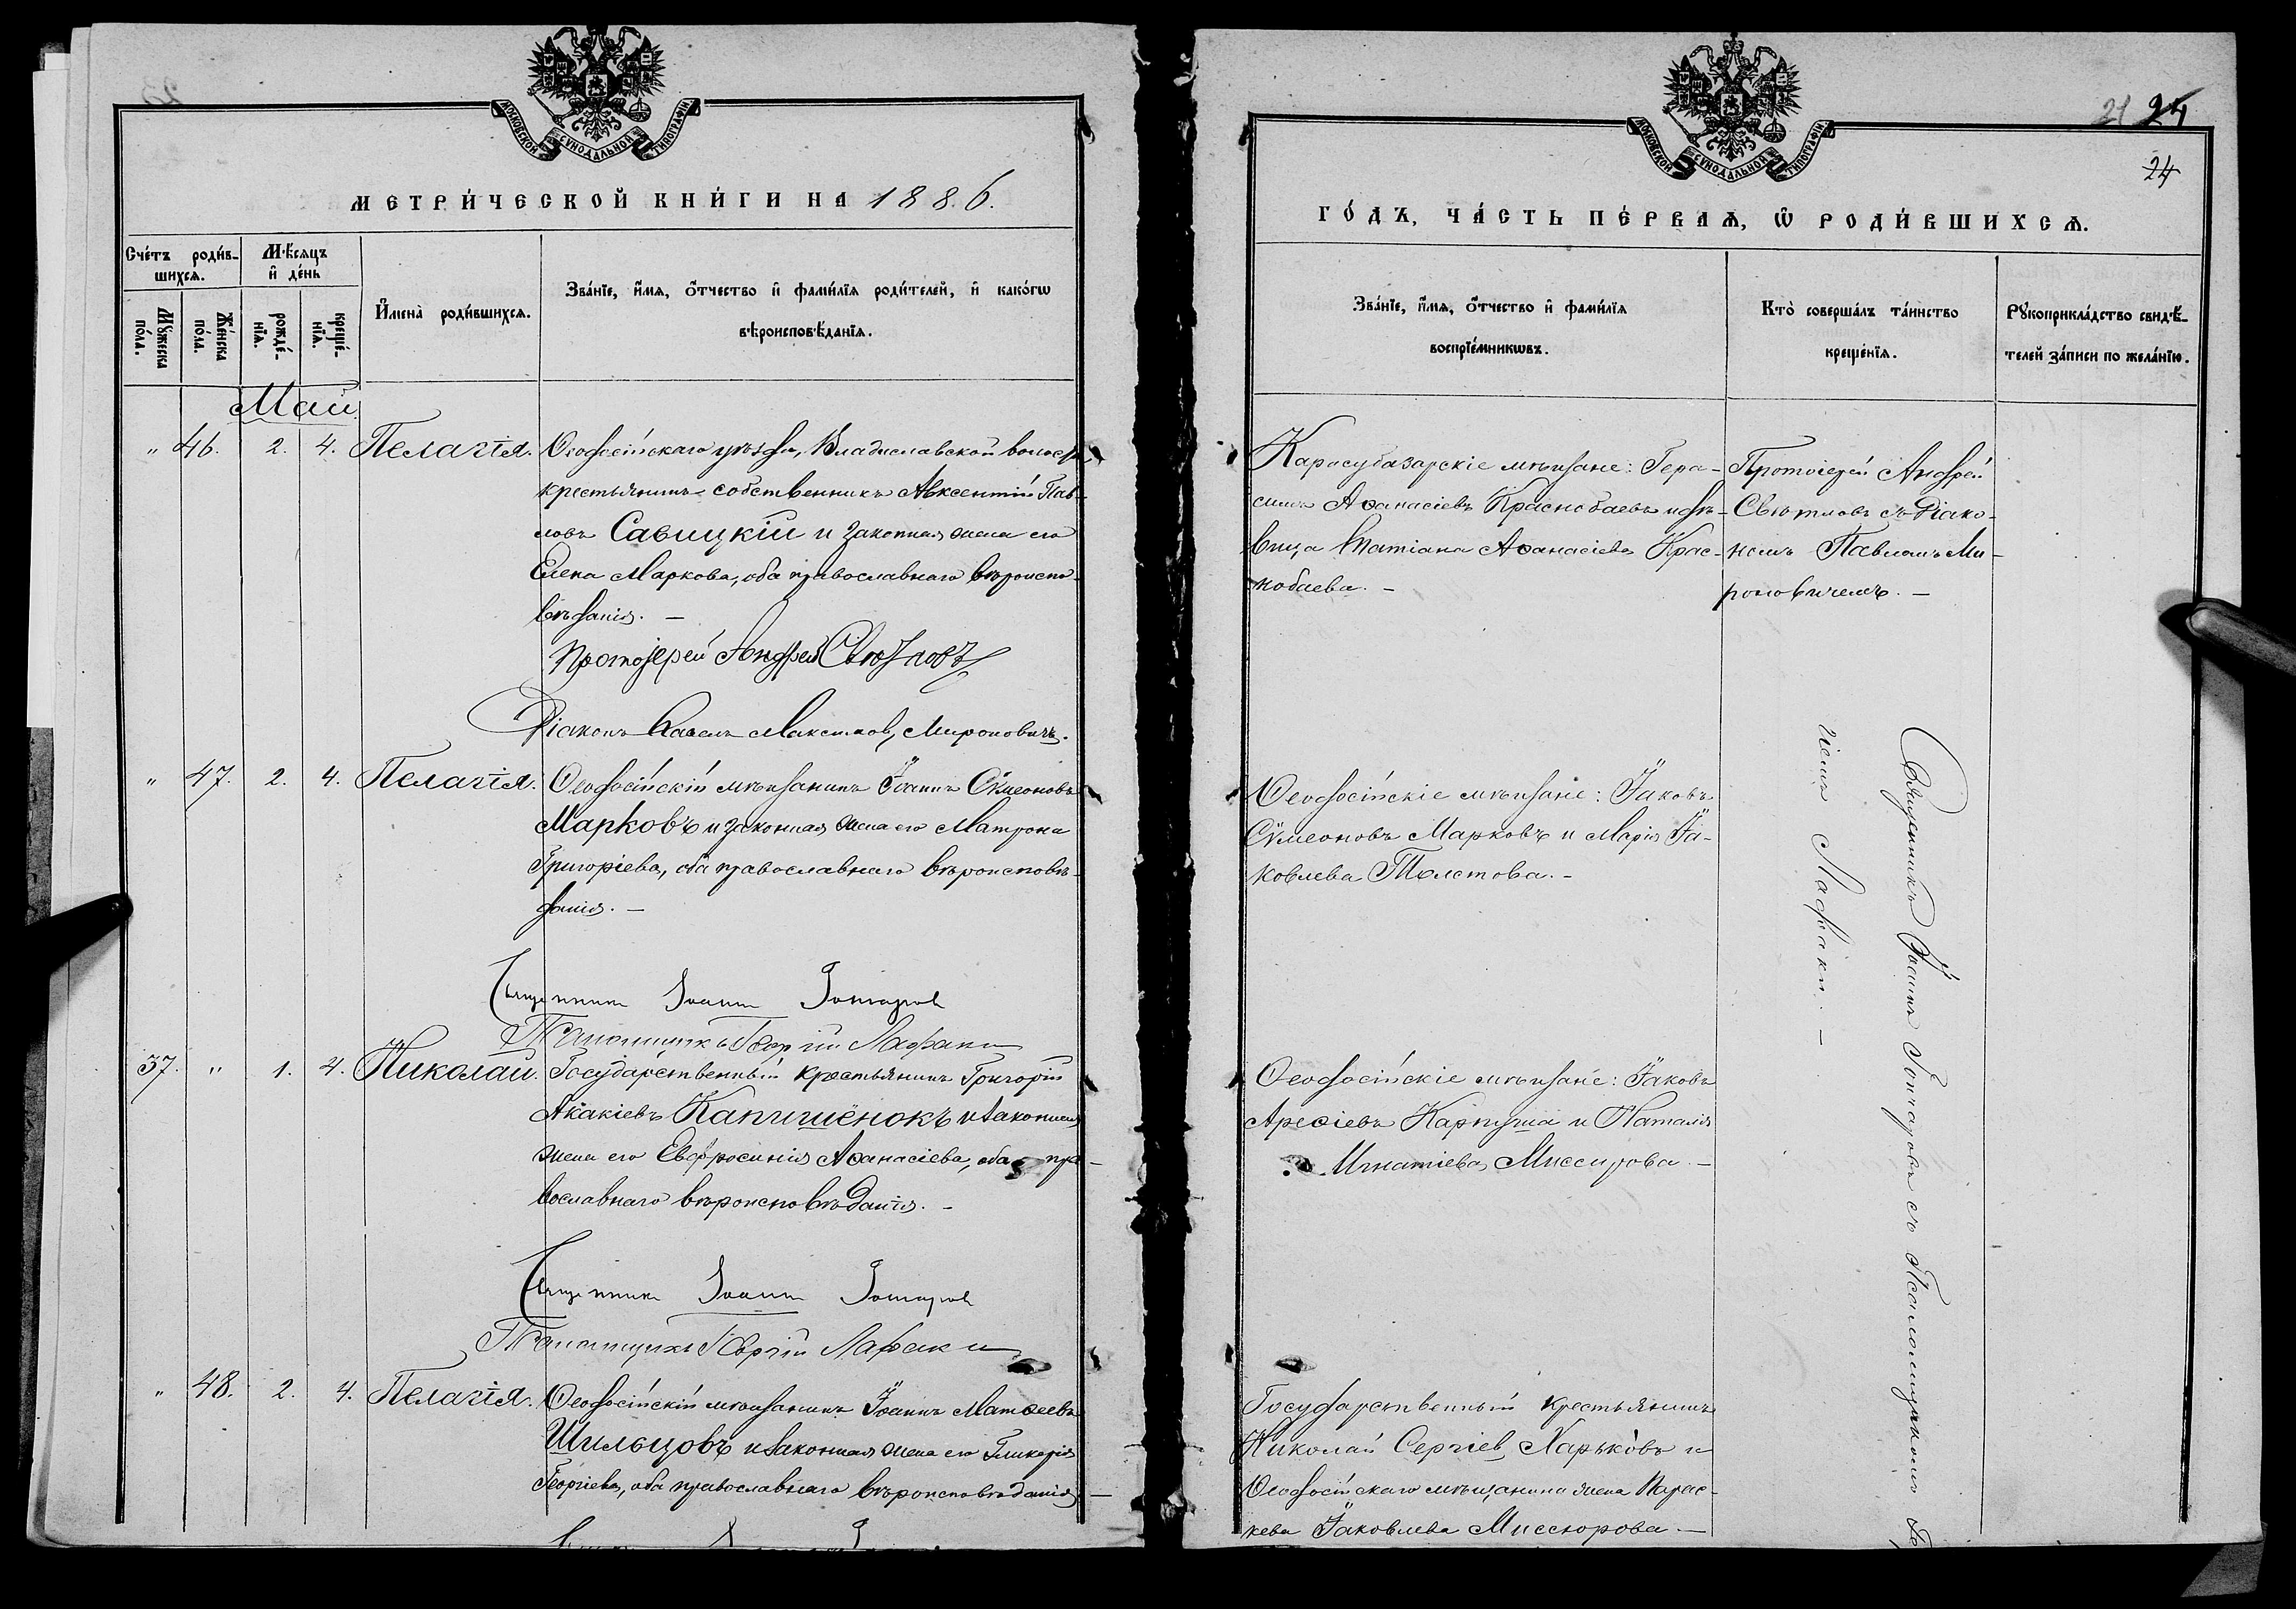 МОСКОВСКОЙ СѴНОДАЛЬНОЙ ТИПОГРАФІИ
МЕТРИ́ЧЕСКОЙ КНИ́ГИ НА 1886.
Сче́тъ роди́в-
шихсѧ.
Мѣ́сѧцъ
и҆ де́нь
Мꙋ́жеска
по́ла.
Же́нска
по́ла.
рожде́-
нїѧ.
креще́-
нїѧ.
И҆мена̀ роди́вшихсѧ.
Зва́нїе, и҆́мѧ, ѻ҆́тчество и҆ фами́лїѧ роди́телей, и҆ какѡ́гѡ
вѣроисповѣ́данїѧ.
Май
" 46. 2. 4. Пелагія. Ѳеодосійскаго уѣзда, Владиславской волости,
крестьянинъ-собственникъ Авксентій Пав-
ловъ Савицкій и законная жена его
Елена Маркова, оба православнаго вѣроиспо-
вѣданія. —
Протоіерей Андрей Свѣтловъ
Діаконъ Павелъ Максимов, Мироновичъ.
" 47. 2. 4. Пелагія. Ѳеодосійскій мѣщанинъ Іоаннъ Сѵмеоновъ
Марковъ и законная жена его Матрона
Григоріева, оба православнаго вѣроисповѣ-
данія. —
Священник Іоанн Гончаров
Псаломщикъ Георгій Лафаки
37. " 1. 4. Николай. Государственный крестьянинъ Григорій
Акакіевъ Капишёнокъ и законная
жена его Евфросинія Аѳанасіева, оба пра-
вославнаго вѣроисповѣданія. —
Священник Іоанн Гончаров
Псаломщикъ Георгій Лафаки
" 48. 2. 4. Пелагія. Ѳеодосійскій мѣщанинъ Іоаннъ Матѳеевъ
Шильцовъ и законная жена его Гликерія
Георгіева, оба православнаго вѣроисповѣданія —
МОСКОВСКОЙ СѴНОДАЛЬНОЙ ТИПОГРАФІИ
21 24
24
ГО́ДЪ, ЧА́СТЬ ПЕ́РВАѦ, Ѡ҆ РОДИ́ВШИХСѦ.
Зва́нїе, и҆́мѧ, ѻ҆́тчество и҆ фами́лїѧ
воспрїе́мникѡвъ.
Кто̀ соверша́лъ та́инство
креще́нїѧ.
Рꙋкоприкла́дство свидѣ́-
телей за́писи по жела́нїю.
Карасубазарскіе мѣщане: Гера-
симъ Аѳанасіевъ Краснобаевъ и дѣ-
вица Татіана Аѳанасіева Крас-
нобаева. —
Протоіерей Андрей
Свѣтловъ съ Діако-
номъ Павломъ Ми-
роновичемъ. —
Ѳеодосійскіе мѣщане: Іаковъ
Сѵмеоновъ Марковъ и Марія Іа-
ковлева Толстова. —
Ѳеодосійскіе мѣщане: Іаковъ
Ареѳіевъ Карпуша и Наталія
Игнатіева Миссирова. —
Государственный крестьянинъ
Николай Сергіев, Харьковъ и
Ѳеодосійскаго мѣщанина жена Парас-
кева Іаковлева Миссюрова. —
Священникъ Іоаннъ Гончаровъ съ Псаломщикомъ Ге
гіемъ Лафаки. —